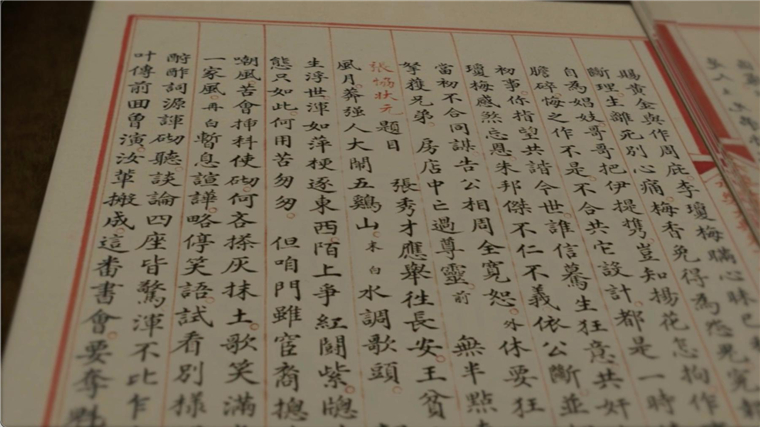 賜黃金與作周庇李瓊梅瞞心昧已
斷理生離死別心痛梅香免得為怨鬼寃
自為娼妓哥哥把伊提携豈知楊花怎拘作
膽碎悔之作不是不合共它設計都是一時
初事你指望共諧今世誰信驀生狂意共奸
瓊梅感然忘恩朱邦傑不仁不義依公斷並
當初不合同謀告公相周全寬恕 外 休要狂
拏獲兄弟 房店中亡過尊靈 前 無半點
張協狀元 題目 張秀才應舉往長安王貧
風月莽強人大鬧五鷄山 末白 水調歌頭
生浮世渾如萍梗逐東西陌上爭紅鬪紫牕
態只如此何用苦匆匆 但咱門雖宦裔摠
嘲風苦會揷科使砌何吝搽灰抹土歌笑滿
一家風 再白 暫息諠譁略停笑語試看別樣
酧酢詞源諢砌聽談論四座皆驚渾不比乍
叶傳前回曾演汝輩搬成這番書會要奪魁